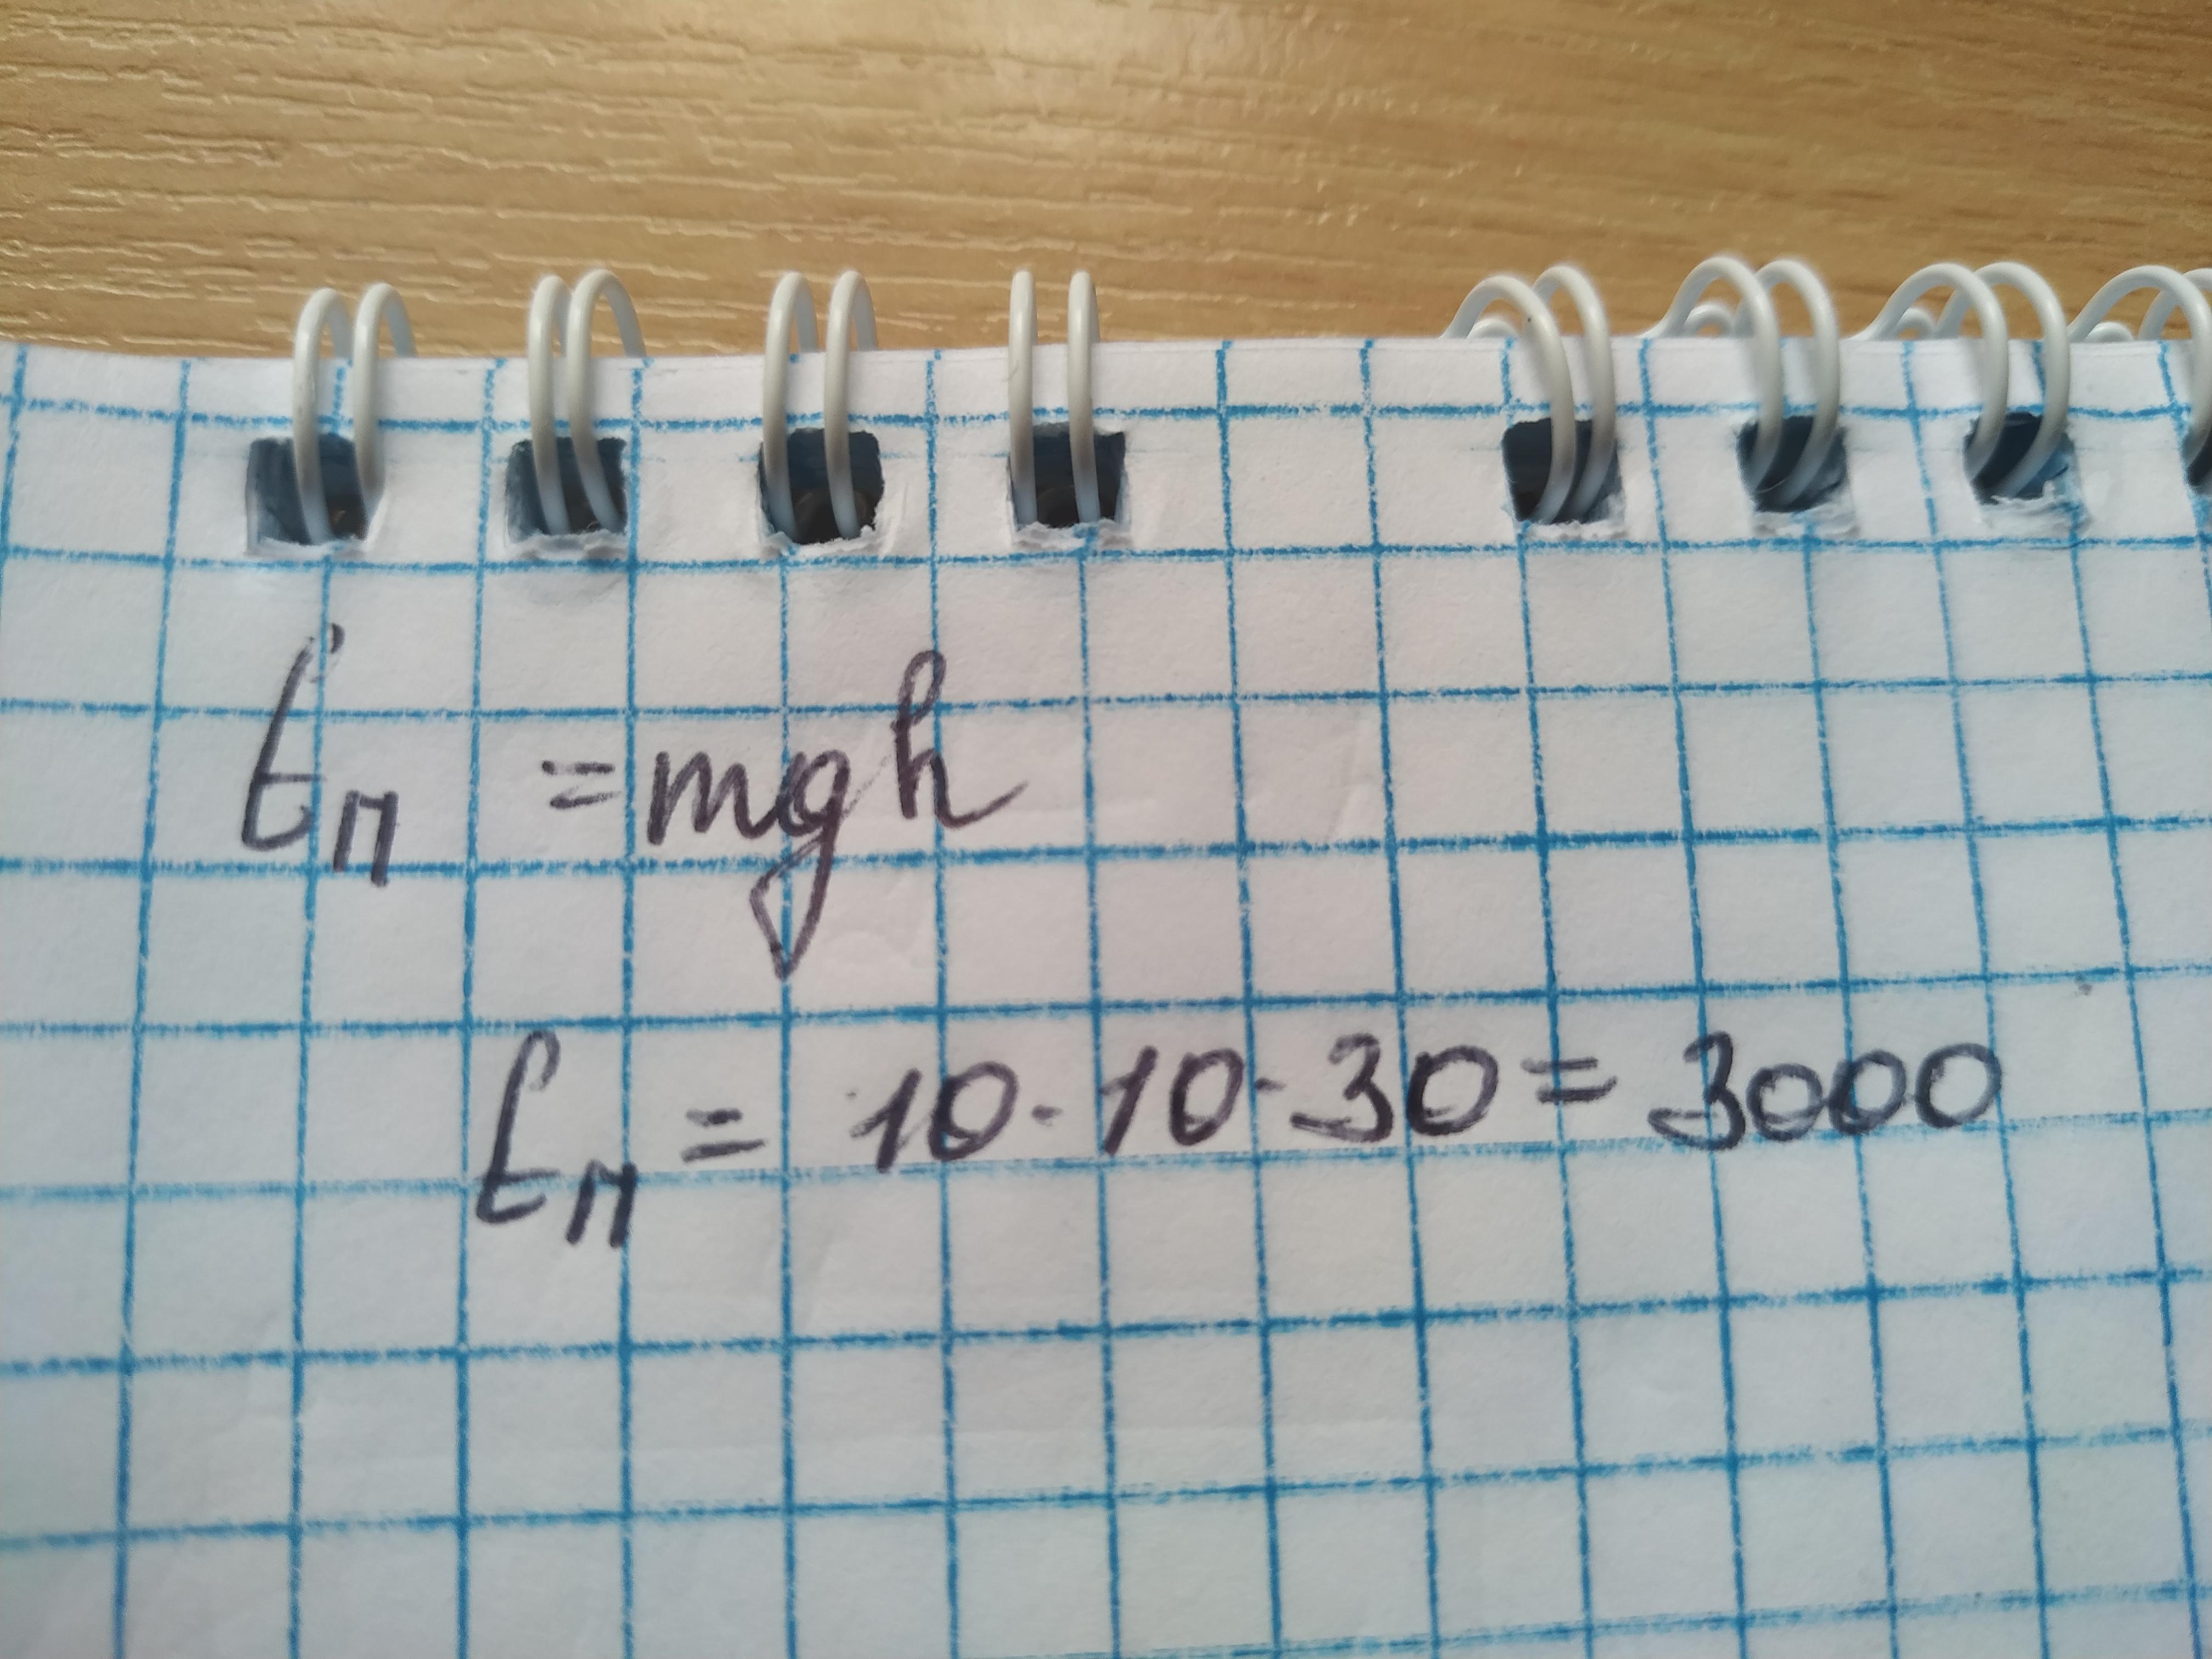 Eп = mgh
Eп = 10 · 10 · 30 = 3000